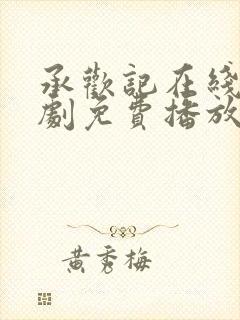 承歡記在綫
劇免費播放
黃秀梅